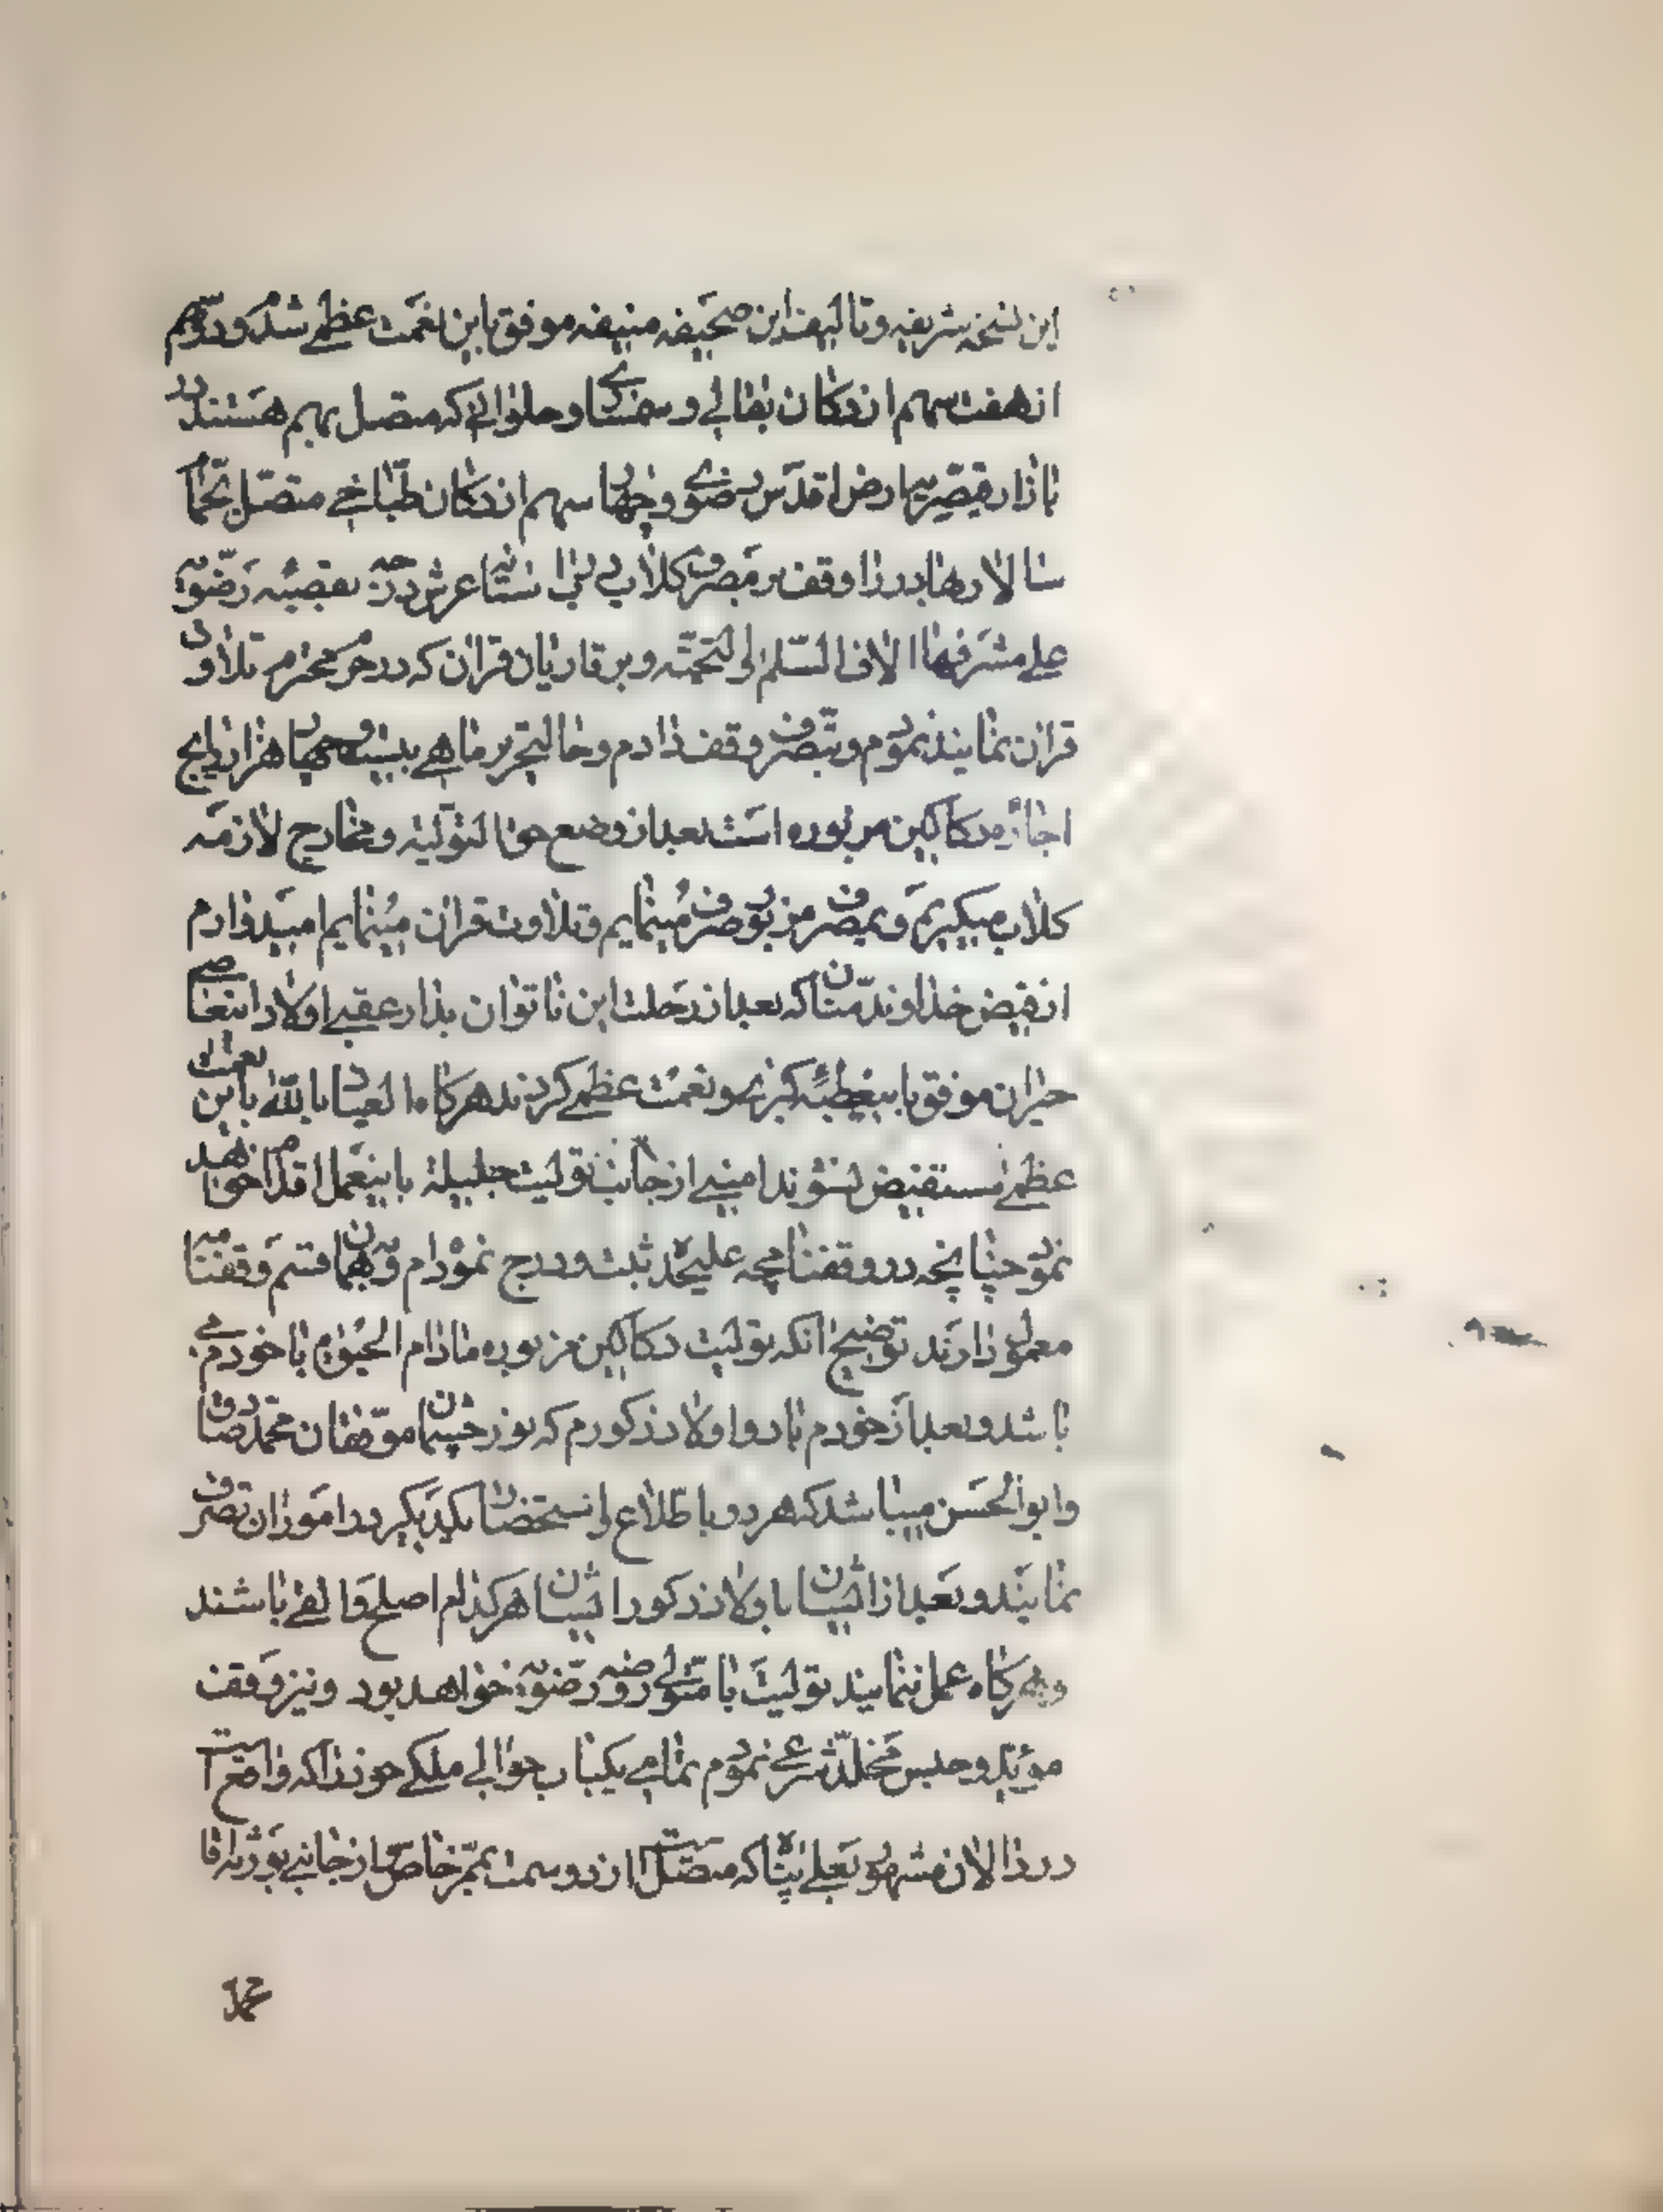 این نسخه شریفه و تالیف این صحیفه منیفه موفق باین نعمت عظمی شدم و دو سهم
از هفت سهم از دکان بقالی و سمساری و حلوائی که متصل بهم هستند در
بازار قیصریه ارض اقدس رضوی و چهار سهم از دکان طباخی متصل بحمام
سالار هابدرا وقف بر مصرف کلاب برای استانه عرش درجه بقصبه رضویه
علی مشرفها الاف السلم و التحیه و بر قاریان قران که در حرم محترم تلاوت
قران نمایند نمودم و بتصرف وقف دادم و حال التحریر ماهی بیست و چهار هزار رایج
اجاره دکاکین مزبوره است بعد از وضع حق التولیه و مخارج لازمه
کلاب میگیریم و بمصرف مزبور صرف مینمایم و تلاوت قران مینمایم امیدوارم
از فیض خداوند منان که بعد از رحلت این ناتوان بذار عقبی اولاد اینعاصی
حیران موفق باینعطیه کبری و نعمت عظمی کردند هرکاه العیاذ بالله باین نعمت
عظمی مستفیض نشوند امینی از جانب تولیت جلیله باینعمل اقدام خواهند
نمود چنانچه در وقفنامچه علیحده ثبت و درج نمودهام و بهمان قسم وقفنامه
معمول دارند توضیح انکه تولیت دکاکین مزبوره مادام الحیوة با خودم می
باشد و بعد از خودم با دو اولاد ذکورم که نور چشمان موفقان محمد صادق
و ابوالحسن میباشد که هر دو باطلاع و استحضار یکدیگر در امور ان تصرف
نمایند و بعد از ایشان با اولاد ذکور ایشان هر کدام اصلح و اتقی باشند
و هرکاه عمل ننمایند تولیت با متولی روضه رضویه خواهد بود و نیز وقف
موبد و حبس مخلد شرعی نمودم تمامی یکباب حوالی ملکی خود را که واقع است
در دالان مشهور بعلی پاشا که متصل است از دو سمت بممر خاص و از جانبی بورثه اقا
محمد